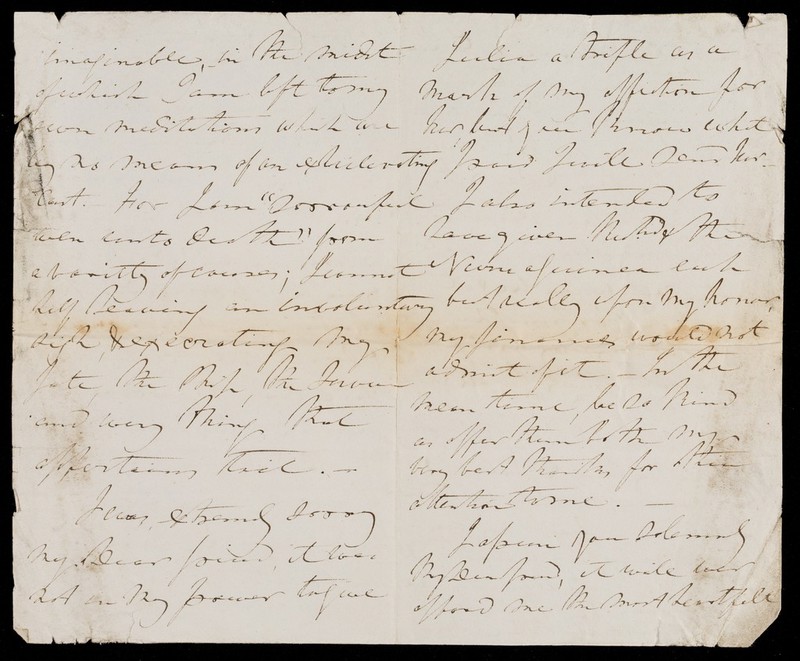 imaginable, in the midst
of which I am left to my
own meditations which are
by no means of an exhilarating
cast. For I am "sorrowful
even unto death" from
a variety of causes; I cannot
help heaving an involuntary
sigh, & execrating my
fate, the Ship, the
and every thing that
appertains . —
I was extremely sorry
my Dear friend, it was
not in my power to give
Julia a trifle as a
mark of my affection for
her, but you know what
I said I will send her —
I also intended to
have given & the
Nurse a guinea each
but really upon my honor,
my finances would not
admit of it. — In the
mean time, be so kind
as offer them both my
very best thanks for their
attention to me. —
I assure you solemnly
My Dear friend, it will ever
afford me the most heartfelt